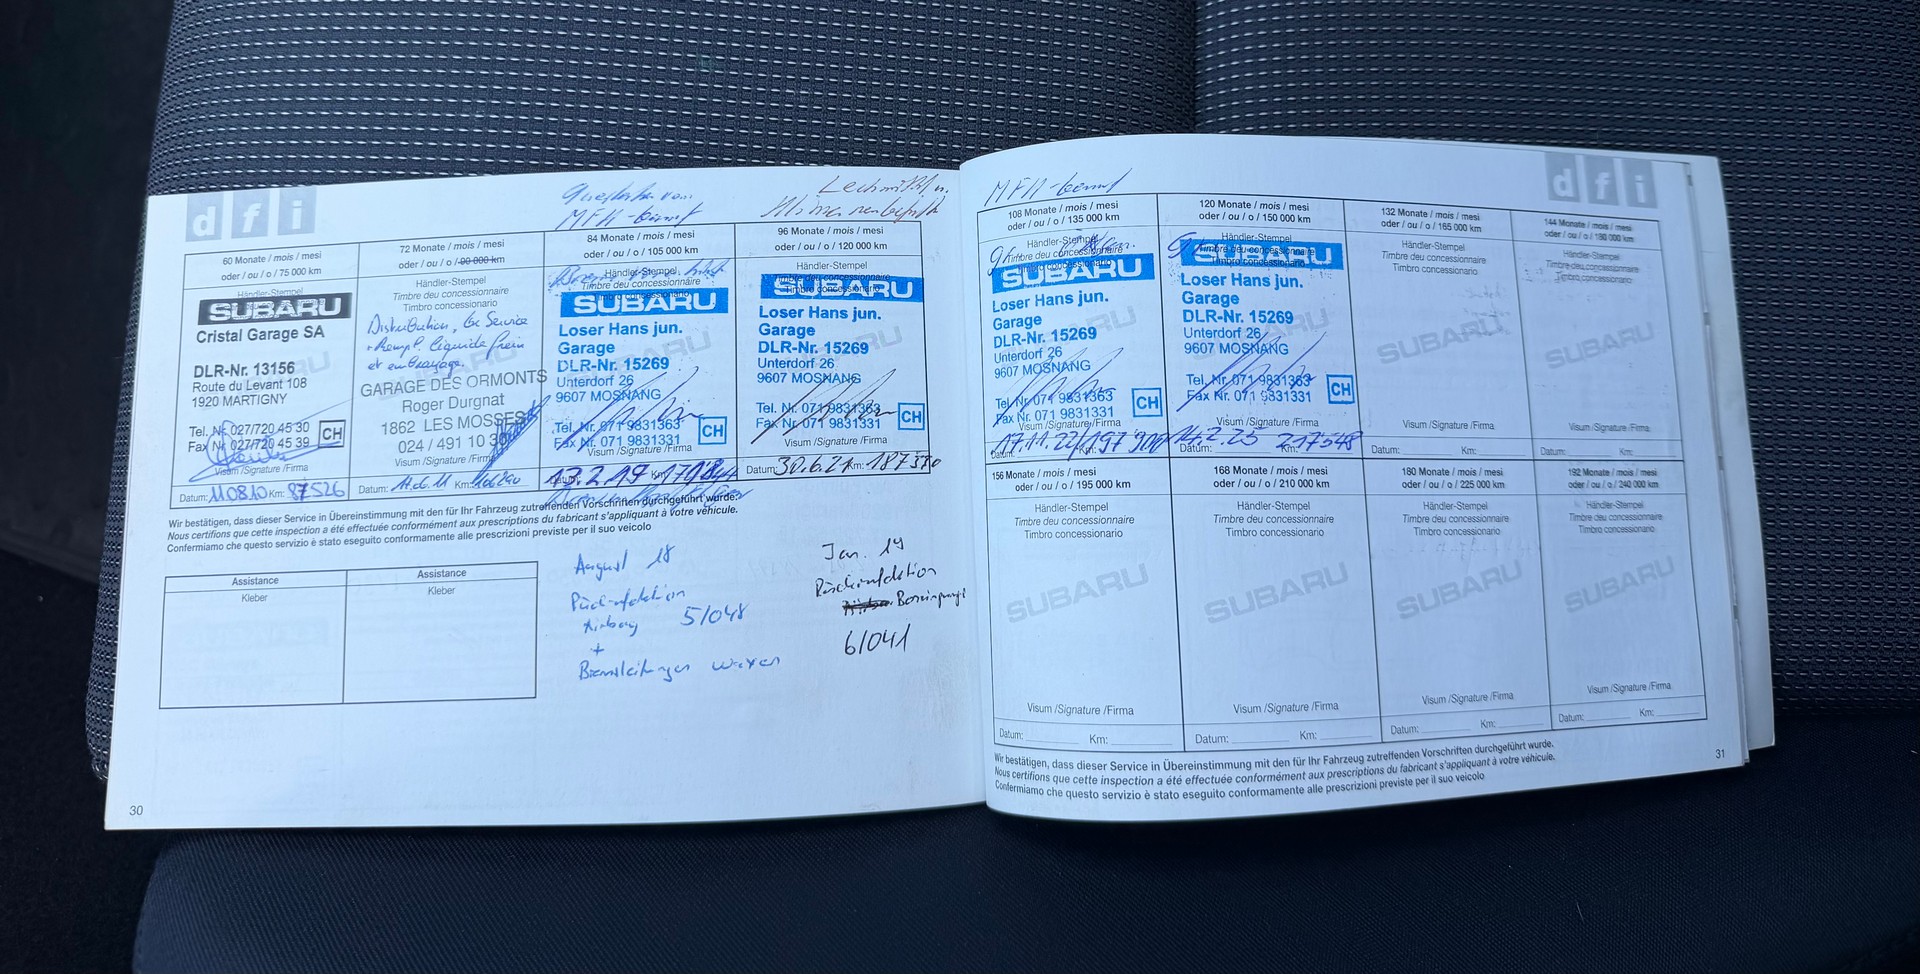 dfi
MFH-
60 Monate / mois / mesi
oder / ou / o / 75 000 km
Händler-Stempel
SUBARU
Cristal Garage SA
DLR-Nr. 13156
Route du Levant 108
1920 MARTIGNY
Tel. Nr 027/720 45 30
Fax Nr 027/720 45 39
CH
Visum /Signature /Firma
Datum: 11 08 10 Km: 87526
72 Monate / mois / mesi
oder / ou / o / 90 000 km
Händler-Stempel
Timbre deu concessionnaire
Timbro concessionario
Distribution, Service
Rempl liquide frein
et embrayage
GARAGE DES ORMONTS
Roger Durgnat
1862 LES MOSSES
024 / 491 10
Visum /Signature /Firma
Datum: 11.6.11 Km: 106290
84 Monate / mois / mesi
oder / ou / o / 105 000 km
Händler-Stempel
Timbre deu concessionnaire
SUBARU
Loser Hans jun.
Garage
DLR-Nr. 15269
Unterdorf 26
9607 MOSNANG
Tel. Nr. 071 9831363
Fax Nr. 071 9831331
CH
Visum /Signature /Firma
2.19 Km
96 Monate / mois / mesi
oder / ou / o / 120 000 km
Händler-Stempel
Timbre deu concessionnaire
Timbro concessionario
SUBARU
Loser Hans jun.
Garage
DLR-Nr. 15269
Unterdorf 26
9607 MOSNANG
Tel. Nr. 071 9831363
Fax Nr. 071 9831331
CH
Visum /Signature /Firma
Datum: 30.6.21 Km:
Wir bestätigen, dass dieser Service in Übereinstimmung mit den für Ihr Fahrzeug zutreffenden Vorschriften durchgeführt wurde.
Nous certifions que cette inspection a été effectuée conformément aux prescriptions du fabricant s'appliquant à votre véhicule.
Confermiamo che questo servizio è stato eseguito conformamente alle prescrizioni previste per il suo veicolo
Assistance
Kleber
Assistance
Kleber
August 18
Rückrufaktion
Airbag 5/048
+
Bremsleitungen waxen
Jan. 19
Rückrufaktion
6/041
30
dfi
MFH-
108 Monate / mois / mesi
oder / ou / o / 135 000 km
Händler-Stempel
Timbre deu concessionnaire
Timbro concessionario
SUBARU
Loser Hans jun.
Garage
DLR-Nr. 15269
Unterdorf 26
9607 MOSNANG
Tel. Nr. 071 9831363
Fax Nr. 071 9831331
CH
Visum /Signature /Firma
Datum: 17.11.22 197 900
120 Monate / mois / mesi
oder / ou / o / 150 000 km
Händler-Stempel
Timbre deu concessionnaire
Timbro concessionario
SUBARU
Loser Hans jun.
Garage
DLR-Nr. 15269
Unterdorf 26
9607 MOSNANG
Tel. Nr. 071 9831363
Fax Nr. 071 9831331
CH
Visum /Signature /Firma
Datum: 14.2.25 217548
132 Monate / mois / mesi
oder / ou / o / 165 000 km
Händler-Stempel
Timbre deu concessionnaire
Timbro concessionario
SUBARU
Visum /Signature /Firma
Datum: Km:
144 Monate / mois / mesi
oder / ou / o / 180 000 km
Händler-Stempel
Timbre deu concessionnaire
Timbro concessionario
SUBARU
Visum /Signature /Firma
Datum: Km:
156 Monate / mois / mesi
oder / ou / o / 195 000 km
Händler-Stempel
Timbre deu concessionnaire
Timbro concessionario
SUBARU
Visum /Signature /Firma
Datum: Km:
168 Monate / mois / mesi
oder / ou / o / 210 000 km
Händler-Stempel
Timbre deu concessionnaire
Timbro concessionario
SUBARU
Visum /Signature /Firma
Datum: Km:
180 Monate / mois / mesi
oder / ou / o / 225 000 km
Händler-Stempel
Timbre deu concessionnaire
Timbro concessionario
SUBARU
Visum /Signature /Firma
Datum: Km:
192 Monate / mois / mesi
oder / ou / o / 240 000 km
Händler-Stempel
Timbre deu concessionnaire
Timbro concessionario
SUBARU
Visum /Signature /Firma
Datum: Km:
Wir bestätigen, dass dieser Service in Übereinstimmung mit den für Ihr Fahrzeug zutreffenden Vorschriften durchgeführt wurde.
Nous certifions que cette inspection a été effectuée conformément aux prescriptions du fabricant s'appliquant à votre véhicule.
Confermiamo che questo servizio è stato eseguito conformamente alle prescrizioni previste per il suo veicolo
31